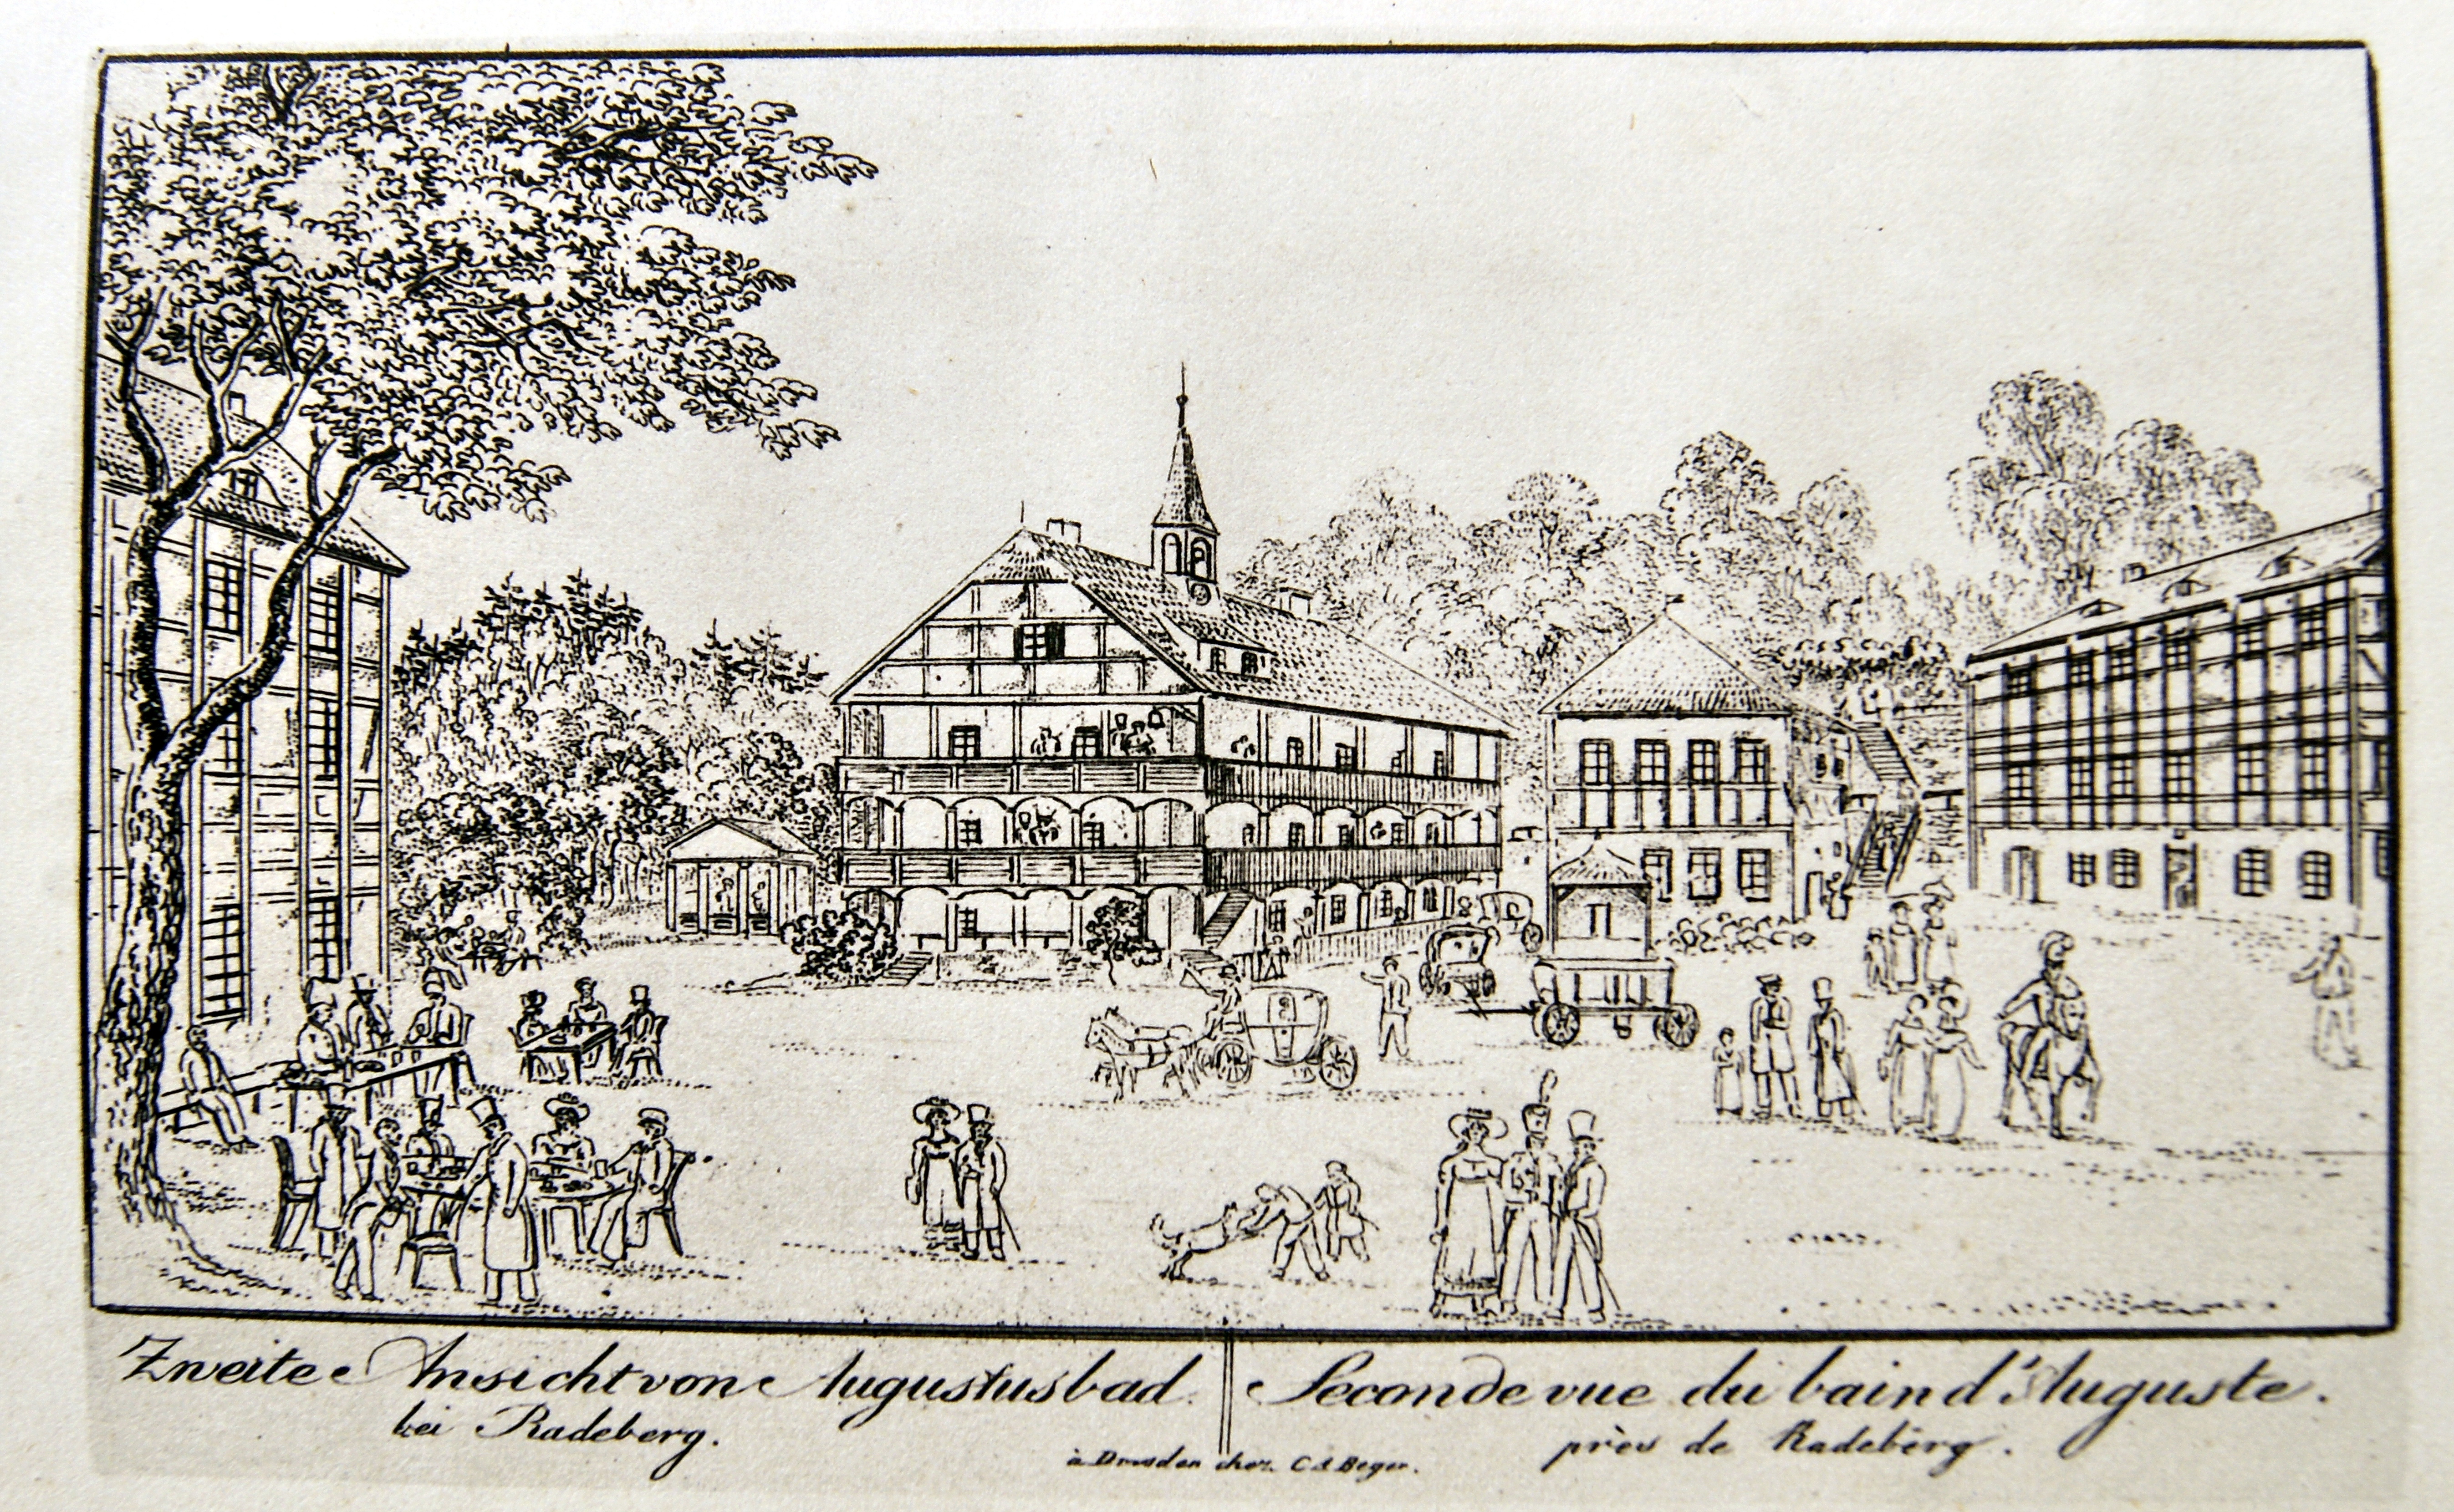 Zweite Ansicht von Augustusbad
bei Radeberg.
Seconde vue du bain d'Auguste.
près de Radeberg.
à Dresden chez C. A. Beger.